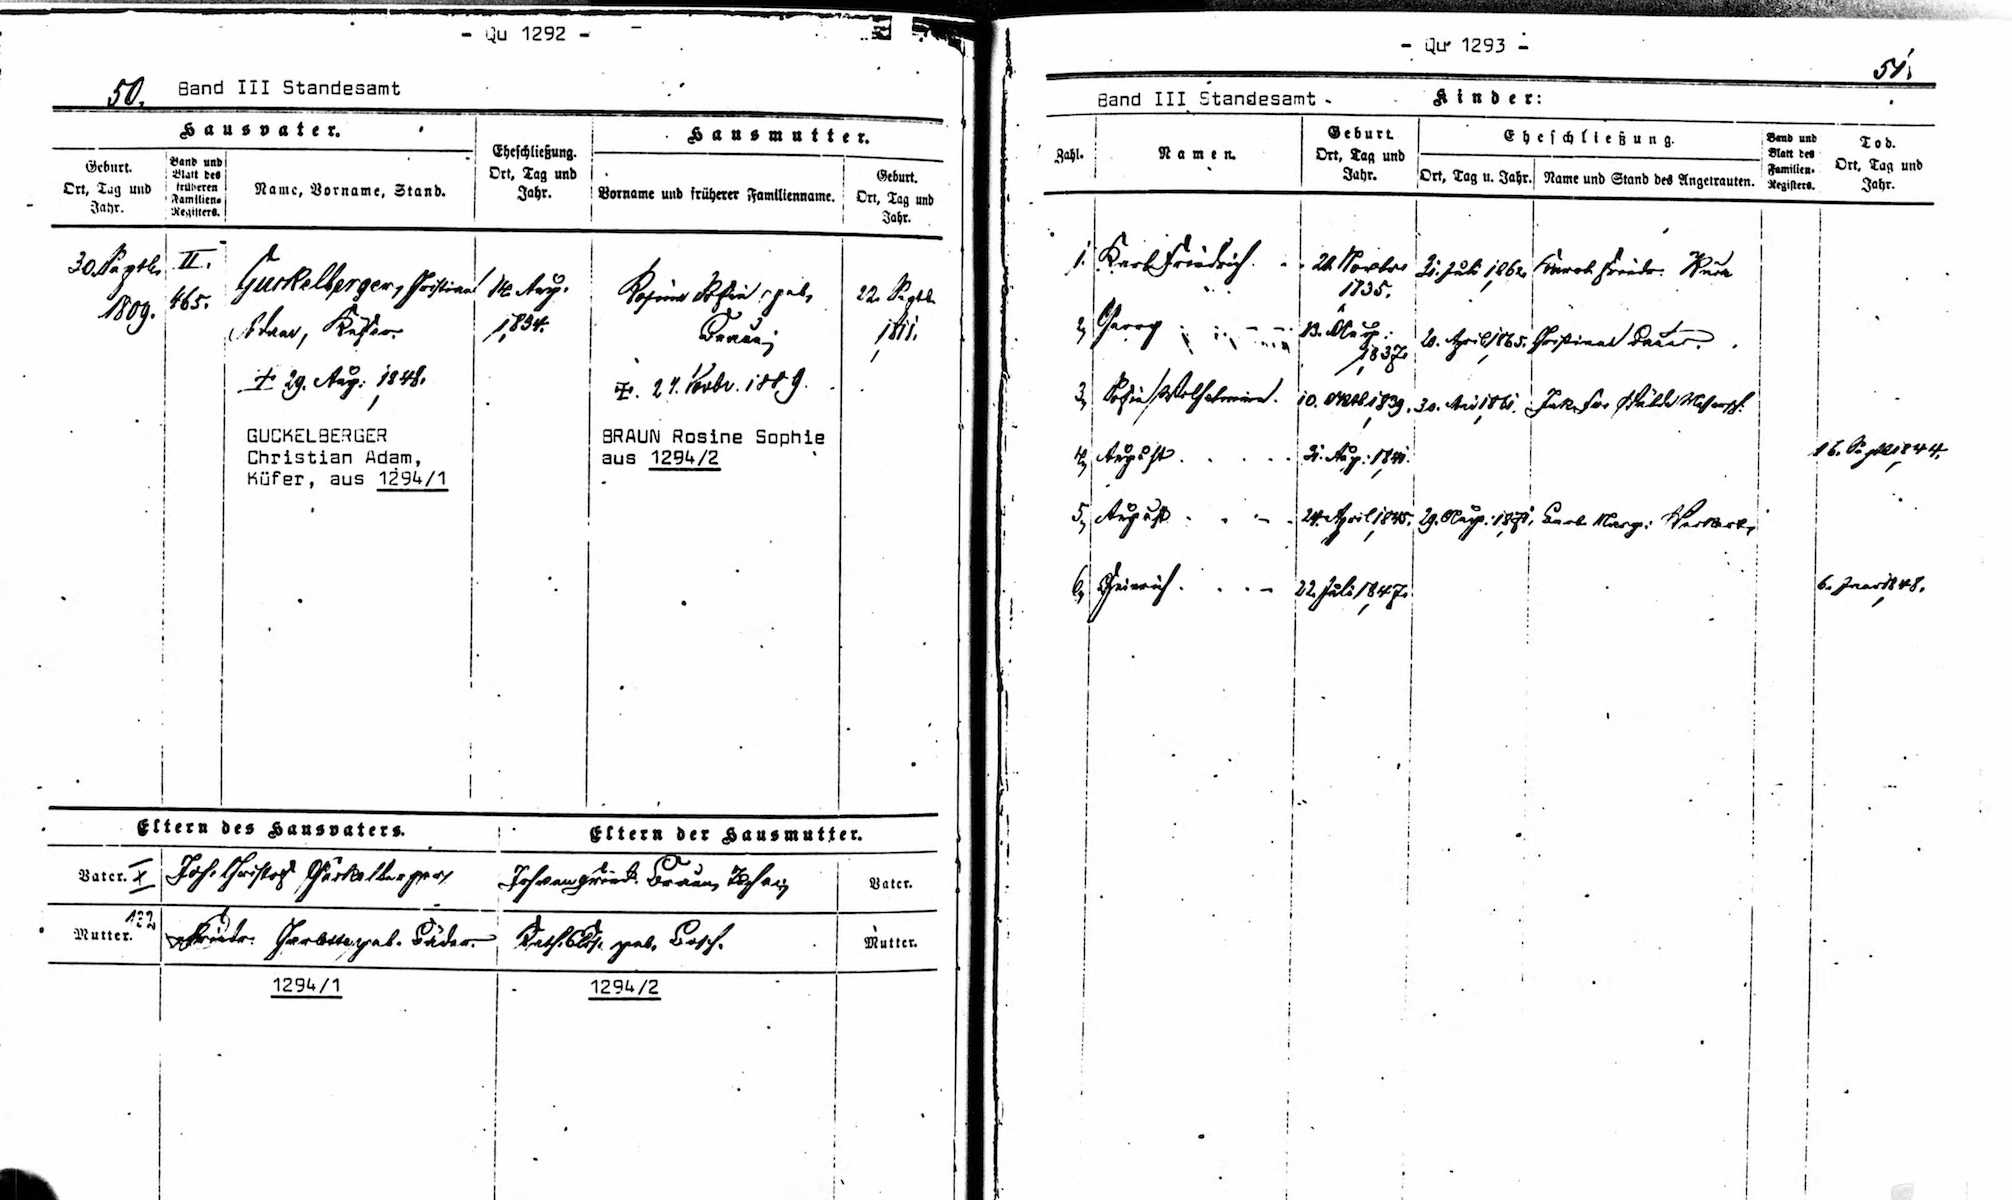 - Qu 1292 -
50. Band III Standesamt
Hausvater.
Hausmutter.
Geburt.
Ort, Tag und
Jahr.
Band und
Blatt des
früheren
Familien-
Registers.
Name, Vorname, Stand.
Eheschließung.
Ort, Tag und
Jahr.
Vorname und früherer Familienname.
Geburt.
Ort, Tag und
Jahr.
30. Septbr.
1809.
II.
465.
Guckelberger, Christian
Adam, Küfer.
+ 29. Aug: 1848.
Aug.
1834.
Rosine Sofie, geb.
Braun,
1889.
22. Septb.
1811.
GUCKELBERGER
Christian Adam,
Küfer, aus 1294/1
BRAUN Rosine Sophie
aus 1294/2
Eltern des Hausvaters.
Eltern der Hausmutter.
Vater.
Joh. Christof Guckelberger,
Johann Friedr. Braun,
Vater.
Mutter.
Friedr. geb. Bäder.
Kath. geb. Bosch.
Mutter.
1294/1
1294/2
- Qu 1293 -
51.
Band III Standesamt.
Kinder:
Zahl.
Namen.
Geburt.
Ort, Tag und
Jahr.
Eheschließung.
Ort, Tag u. Jahr.
Name und Stand des Angetrauten.
Band und
Blatt des
Familien-
Registers.
Tod.
Ort, Tag und
Jahr.
1. Karl Friedrich. Novbr. 1835. 31. Juli 1862. Friedr.
2, Georg 13. Aug: 1837. 20. April 1865. Christiane
3, Sofie Wilhelmine. 10. 1839. 30. 1861.
4, August. 31. Aug: 1841. 16. Septb 1844.
5, August 24. April 1845. 29. Aug: 1871. Marg:
6, Heinrich. 22. Juli 1847. 6. 1848.